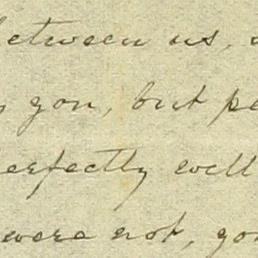 between us,
you, but pe
perfectly well
were not, you